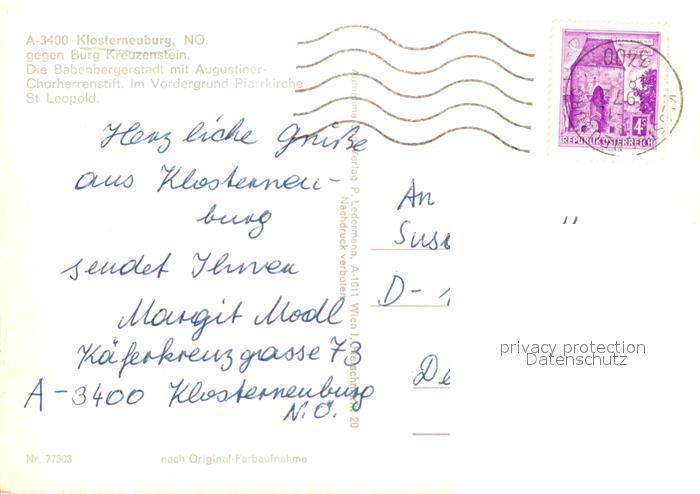 A-3400 Klosterneuburg, NÖ.
gegen Burg Kreuzenstein.
Die Babenbergerstadt mit Augustiner-
Chorherrenstift. Im Vordergrund Pfarrkirche
St. Leopold.
Herzliche Grüße
aus Klosterneu-
burg
sendet Ihnen
Margit Modl
Käferkreuzgasse 73
A-3400 Klosterneuburg
N.Ö.
Nr. 77303
nach Original-Farbaufnahme
Verlag P. Ledermann, A-1011 Wien I, 20
Nachdruck verboten
3400
4S
REPUBLIK ÖSTERREICH
An
D-
privacy protection
Datenschutz